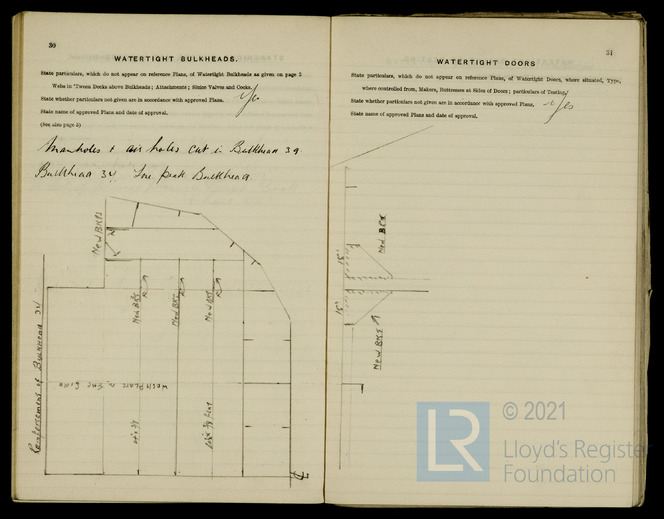 30
WATERTIGHT BULKHEADS.
State particulars, which do not appear on reference Plans, of Watertight Bulkheads as given on page 5
Webs in 'Tween Decks above Bulkheads; Attachments; Sluice Valves and Cocks.
State whether particulars not given are in accordance with approved Plans. Yes
State name of approved Plans and date of approval.
(See also page 5)
Manholes & air holes cut in Bulkhead 39
Bulkhead 34. Fore peak Bulkhead
New BKts
New BKt
New BKt
New BKt
Reinforcement of Bulkhead 34
Wash Plate
31
WATERTIGHT DOORS
State particulars, which do not appear on reference Plans, of Watertight Doors, where situated, Type,
where controlled from, Makers, Buttresses at Sides of Doors; particulars of Testing.
State whether particulars not given are in accordance with approved Plans, Yes
State name of approved Plans and date of approval.
New BKt
15"
15"
New BKt
LR
© 2021
Lloyd's Register
Foundation